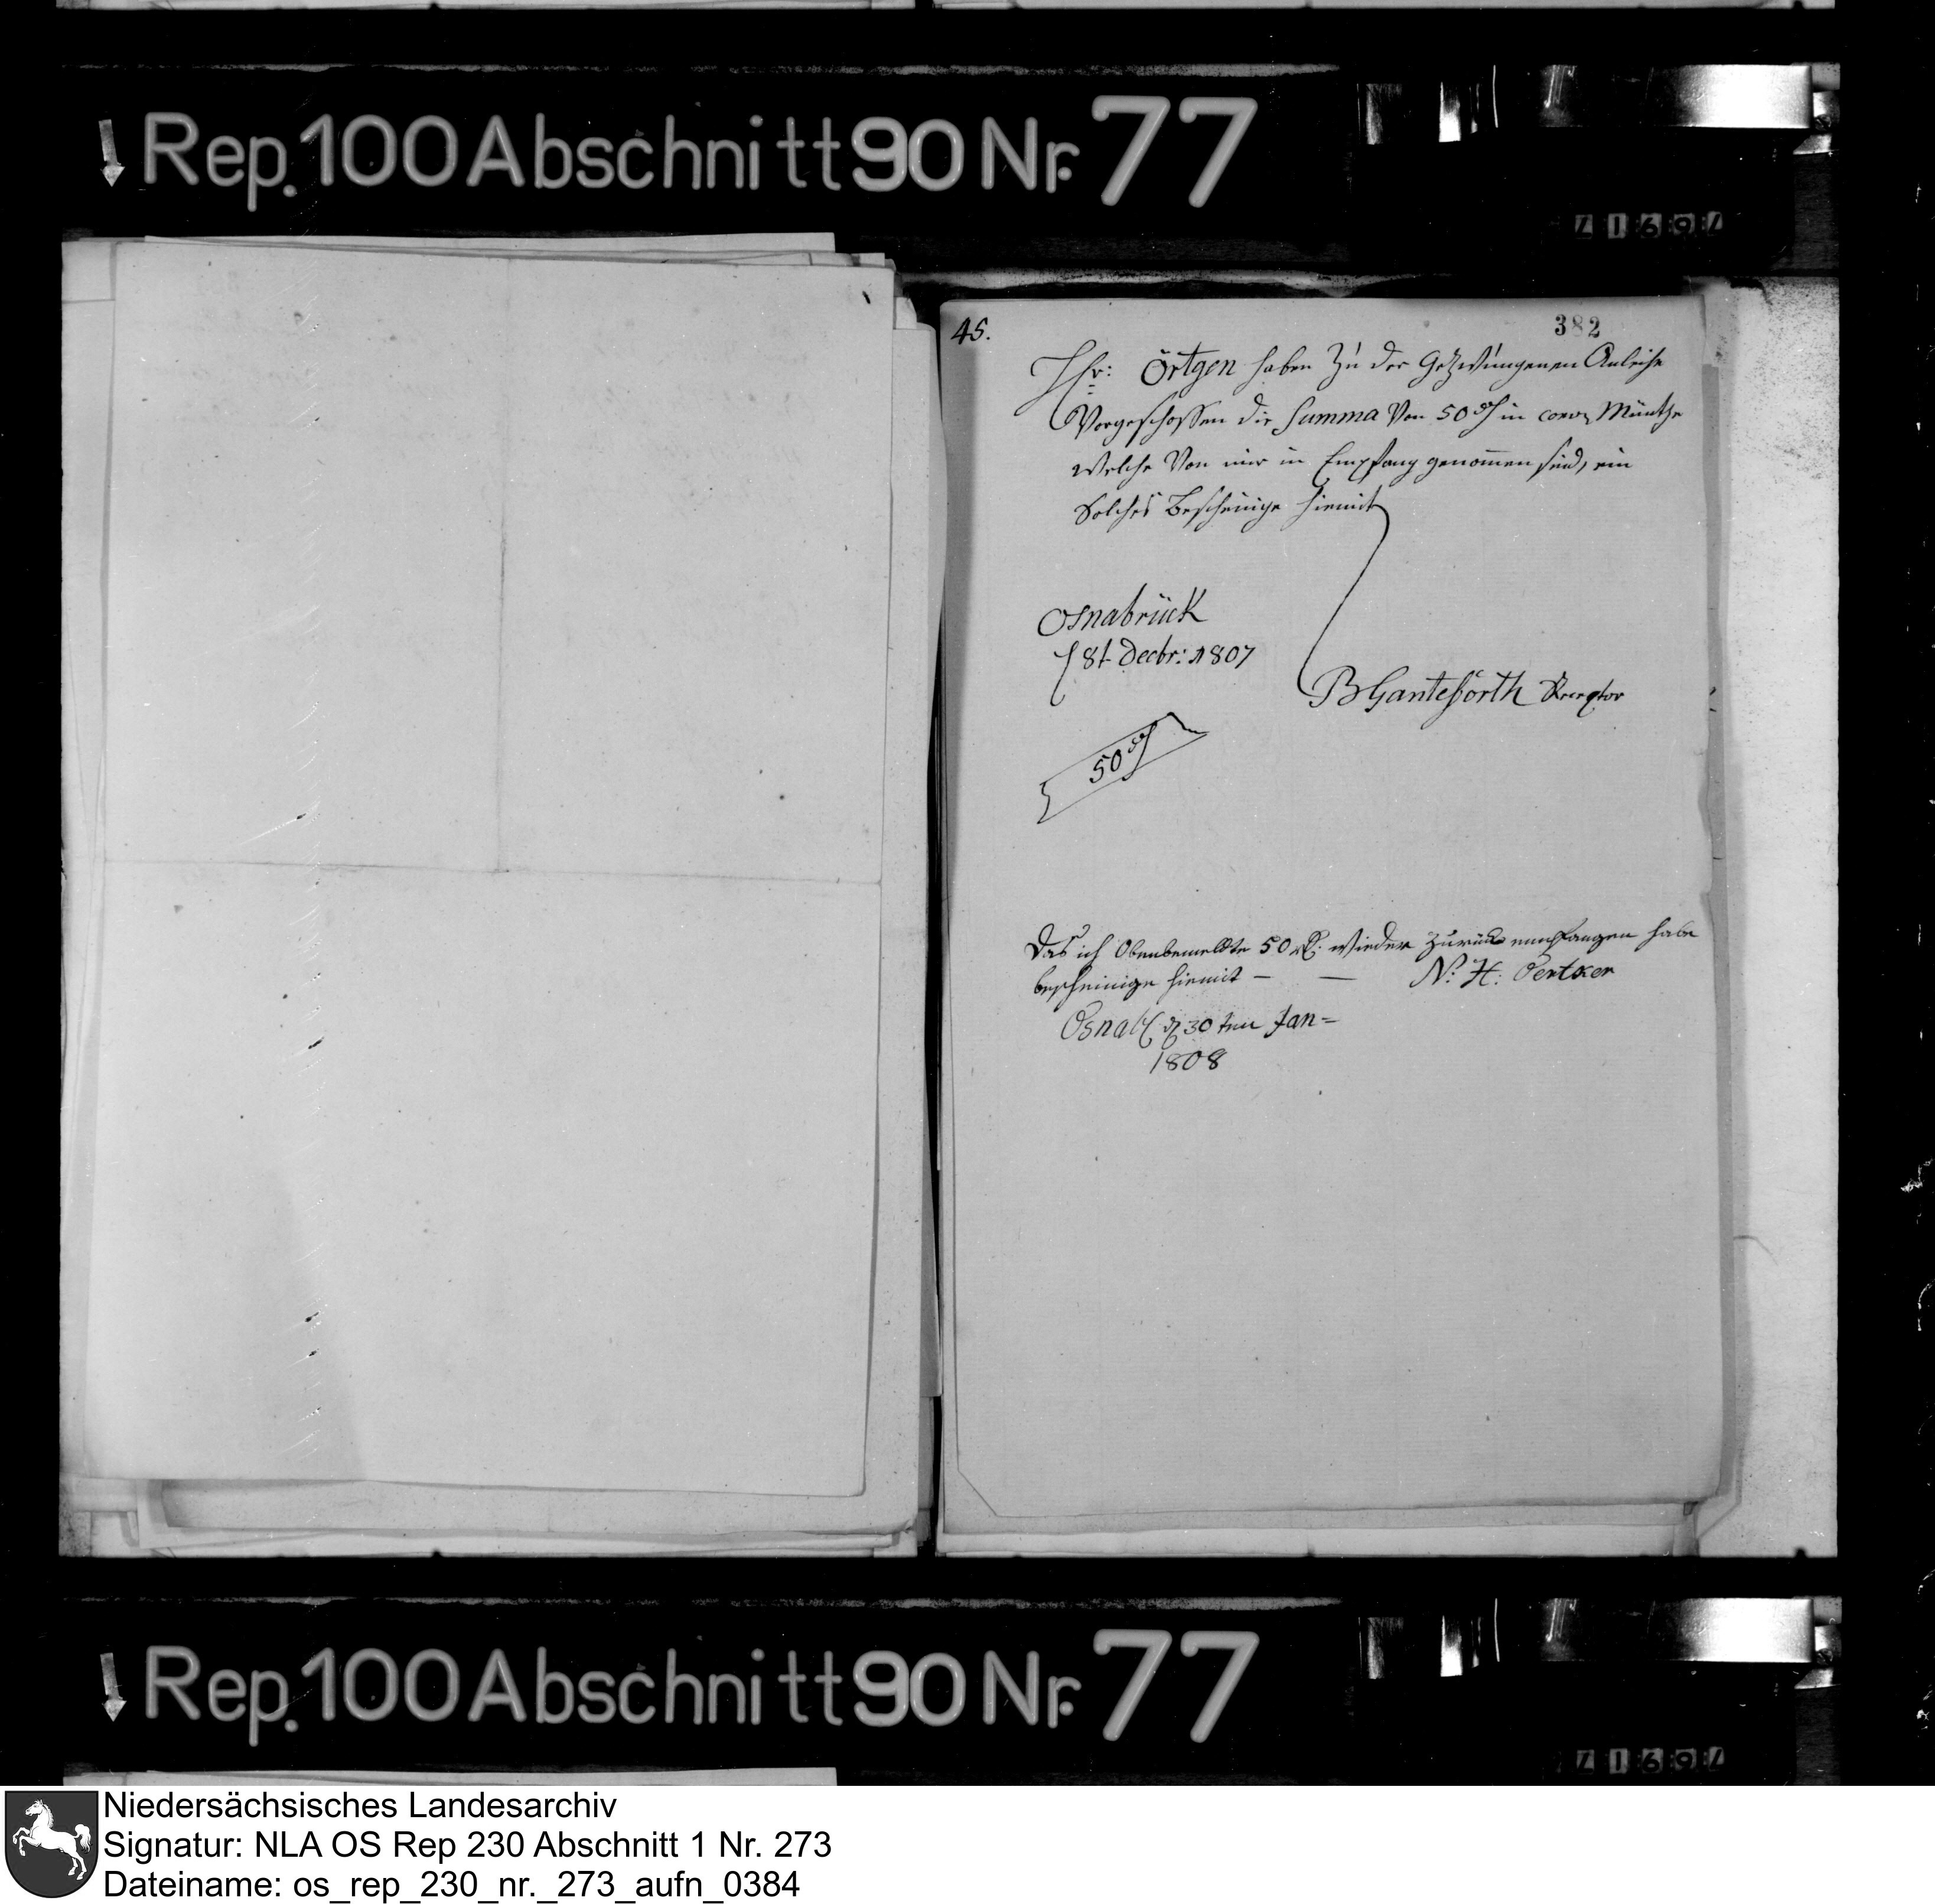 Rep. 100 Abschnitt 90 Nr. 77
45.
382
Hr: Örtgen haben Zu der Gezwungenen Anleihe
Vorgeschossen die Summa Von 50 in conv Müntze
Welche Von mir in Empfang genommen sind, ein
Solches Bescheinige hiemit
Osnabrück
8t Decbr: 1807
BGanteforth Receptor
50
Das ich Obenbemeldte 50 rt. wieder zurück empfangen habe
bescheinige hiemit — — N. H. Oertker
Osnab d 30ten Jan=
1808
Rep. 100 Abschnitt 90 Nr. 77
Niedersächsisches Landesarchiv
Signatur: NLA OS Rep 230 Abschnitt 1 Nr. 273
Dateiname: os_rep_230_nr._273_aufn_0384